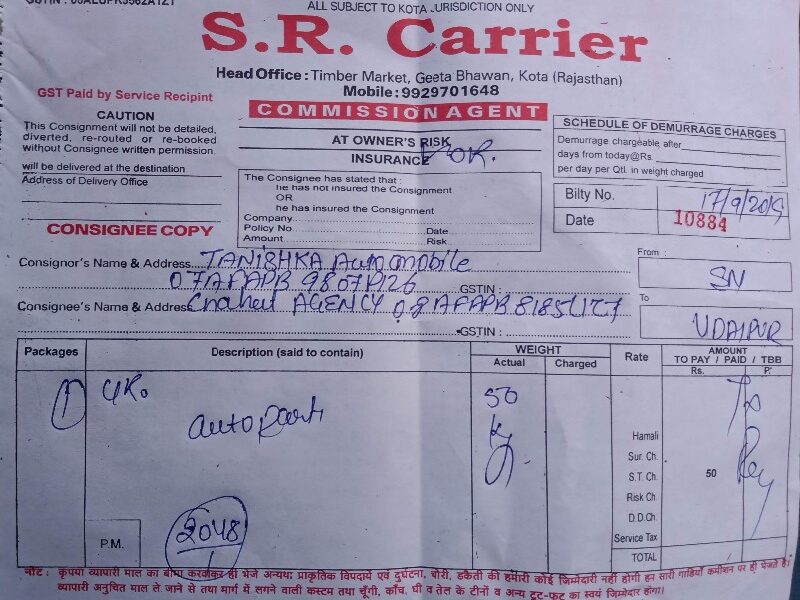 ALL SUBJECT TO KOTA JURISDICTION ONLY
S.R. Carrier
Head Office : Timber Market, Geeta Bhawan, Kota (Rajasthan)
Mobile:9929701648
GST Paid by Service Recipint
COMMISSION AGENT
CAUTION
This Consignment will not be detailed,
diverted, re-routed or re-booked
without Consignee written permission.
will be delivered at the destination
Address of Delivery Office
CONSIGNEE COPY
AT OWNER'S RISK
INSURANCE OR.
The Consignee has stated that :
he has not insured the Consignment
OR
he has insured the Consignment
Company
Policy No Date
Amount Risk
SCHEDULE OF DEMURRAGE CHARGES
Demurrage chargeable after
days from today@Rs.
per day per Qtl. in weight charged
Bilty No. 17/9/2019
Date 10884
Consignor's Name & Address TANISHKA Automobile
GSTIN :
From :
SN
Consignee's Name & Address AGENCY
GSTIN :
To
UDAIPUR
Packages Description (said to contain) WEIGHT Rate AMOUNT
Actual Charged TO PAY / PAID / TBB
Rs. P.
1 autopart 50 kg To Pay
Hamali
Sur. Ch.
S.T. Ch. 50
Risk Ch.
D.D.Ch.
Service Tax
TOTAL
P.M. 2048
नोट : कृपया व्यापारी माल का बीमा करवाकर ही भेजे अन्यथा प्राकृतिक विपदायें एवं दुर्घटना, चोरी, डकैती की हमारी कोई जिम्मेदारी नहीं होगी हम सारी गाडियाँ कमीशन पर ही भेजते है।
व्यापारी अनुचित माल ले जाने से तथा मार्ग में लगने वाली कस्टम तथा चूँगी, काँच, घी व तेल के टीनों व अन्य टूट-फूट का स्वयं जिम्मेदार होगा।